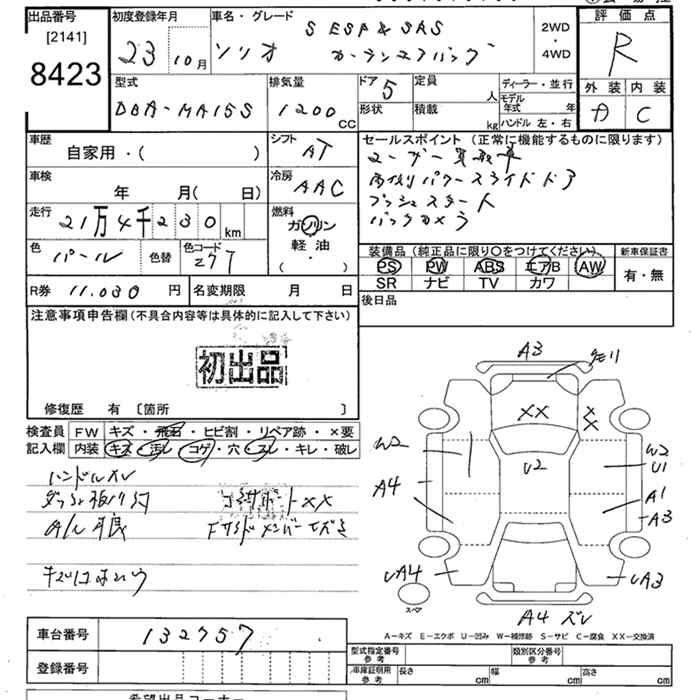 出品番号
[2141]
8423
初度登録年月
23 10月
車名・グレード
S ESP & SRS
ソリオ
カーテンエアバッグ
2WD
・
4WD
評価点
R
外装 内装
A C
型式
DBA-MA15S
排気量
1200 cc
ドア 5
形状
定員 人
積載 kg
ディーラー・並行
モデル年式 年
ハンドル 左・右
車歴
自家用・( )
シフト
AT
セールスポイント (正常に機能するものに限ります)
両側パワースライドドア
プッシュスタート
バックカメラ
車検
年 月( 日)
冷房
AAC
走行
21万4千230km
燃料
ガソリン
軽油
・( )
色
パール
色替
色コード
Z77
装備品 (純正品に限り○をつけてください)
PS PW ABS エアB AW
SR ナビ TV カワ
新車保証書
有・無
R券 11,030 円
名変期限 月 日
後日品
注意事項申告欄 (不具合内容等は具体的に記入して下さい)
初出品
修復歴 有 〔箇所 〕
検査員
記入欄
FW キズ・飛石・ヒビ割・リペア跡・×要
内装 キズ・汚レ・コゲ・穴・スレ・キレ・破レ
ハンドルスレ
A/C不良
コアサポートXX
A3
XX
X
X
W2
U2
W2
U1
A4
A1
A3
UA4
UA3
スペア
A4 ズレ
A-キズ E-エクボ U-凹み W-補修跡 S-サビ C-腐食 XX-交換済
車台番号 132757
登録番号
型式指定番号
参考
類別区分番号
参考
車庫証明用
参考
長さ cm 幅 cm 高さ cm
希望出品コーナー